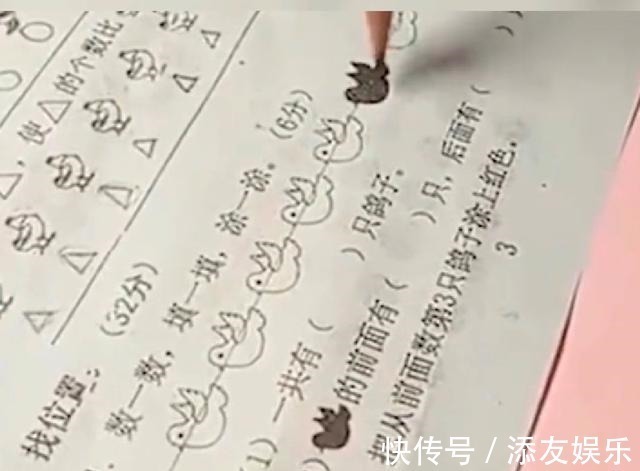 ，使△的个数比
找位置。（32分）
数一数，填一填，涂一涂。（6分）
1）一共有（ ）只鸽子。
）的前面有（ ）只，后面有（ ）
把从前面数第3只鸽子涂上红色。
3
快传号／添友娱乐